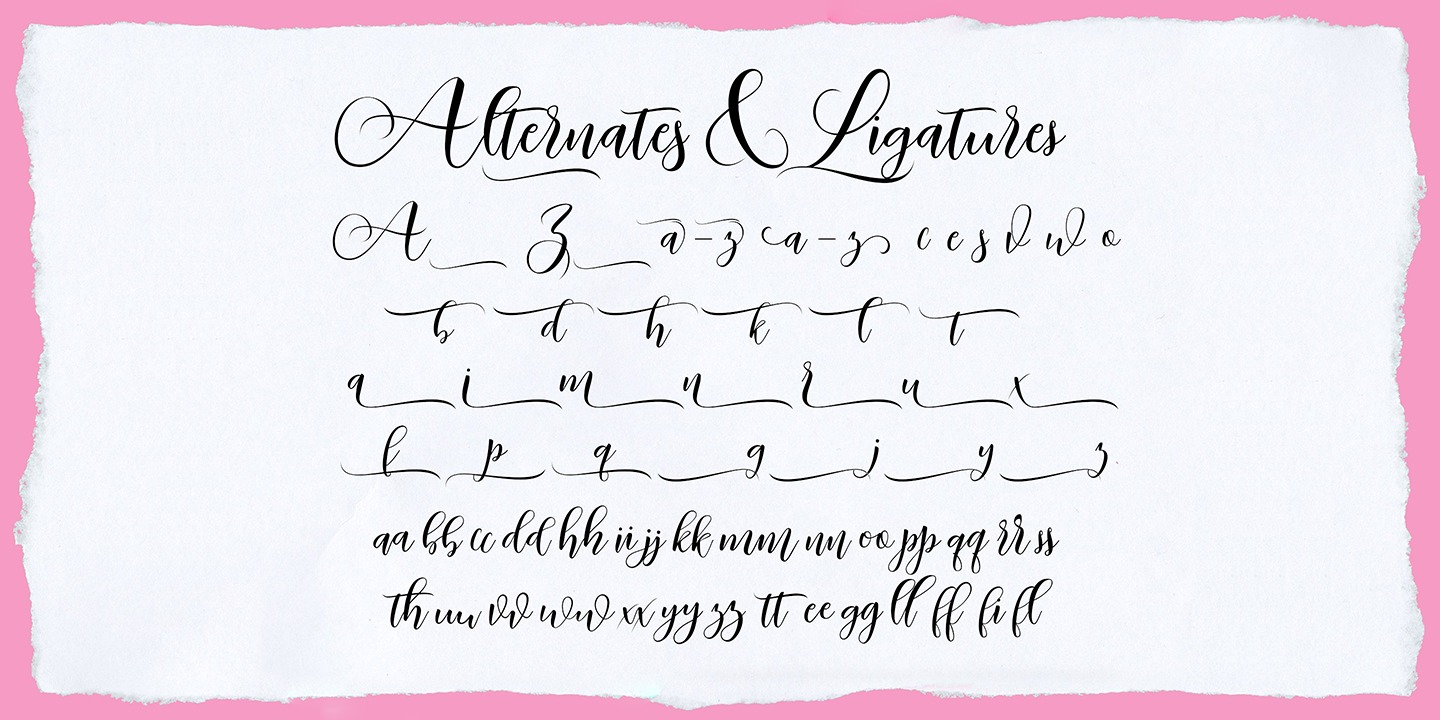 Alternates & Ligatures
A z a - z a - z c e s v w o
b d h k l t
a i m n r u x
f p q g j y z
aa bb cc dd hh ii jj kk mm nn oo pp qq rr ss
th uu vv ww xx yy zz tt ee gg ll ff fi fl